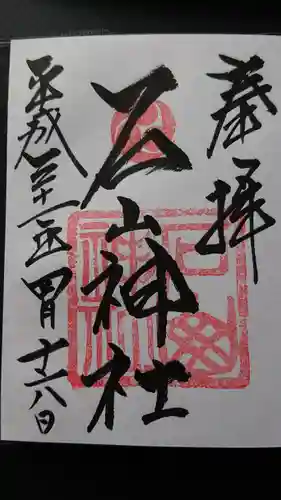 奉拝
石山神社
平成三十一年四月十六日